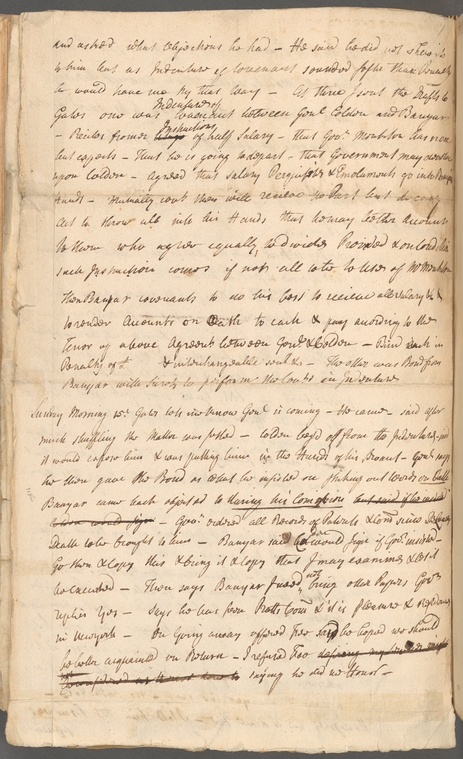 and asked what objections he had – He said he did not shew it
to him but as Indenture of Covenant sounded softer than Penalty
he would have me try that way – At three I sent the Drafts to
Indentures of
Gates one was Covenant between Gov.r Colden and Banyar
– Recites former Instructions of half Salary – that Gov.r Monckton has none
but expects – That he is going to depart – that Government may devolve
upon Colden – Agreed that Salary Perquisites & Emoluments go into Banyar
Hands – mutually cov.t they will receive no Part but do every
Act to throw all into his Hands that he may be their Accountant
to them who agree equally to divide Provided & on Condition
such Instruction comes if not all to be to Uses of Mr Monckton
then Banyar covenants to do his best to receive all Salary & &
to render Accounts on Oath to each & pay according to the
Tenor of above Agreem.t between Gov.r & Colden – Bind each in
Penalty of £ & interchangeable seal &c – The other was Bond from
Banyar with Surety to perform the Cov.ts in Indenture
Sunday Morning Gates lets me know Gov.r is coming – He came – said after
much shuffling the Matter was settled – Colden heg'd off from the Indenture –
it would expose him & was putting him in the Hands of his Servant – Gov.r says
he then gave the Bond as what he insisted on striking out Words on Oath
Banyar came back objected to
– Gov.r ordered all Records of Patents & Com
Death to be brought to him – Banyar said Colden would sign if Gov.r insists –
Go then & copy this & bring it & copy that I may examine & let it
be executed – Then says Banyar I need not bring other Papers Gov.r
replies Yes – Says he has seen Pratts Com & it is Pleasure & residence
in New york – On Going away offered Fee said he hoped we should
be better acquainted on Return – I refused Fee
saying he did me Honor –